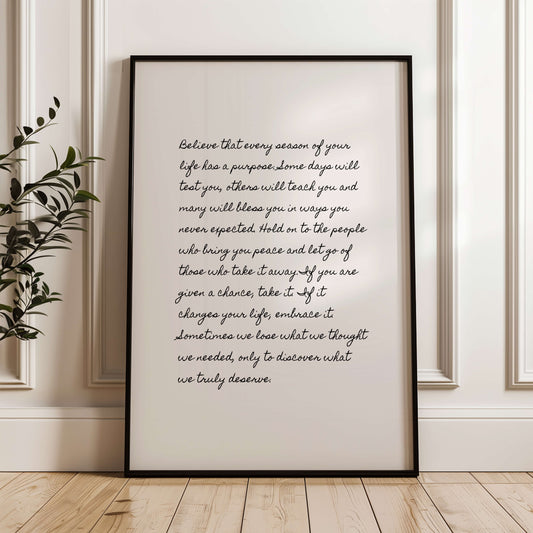 Believe that every season of your
life has a purpose. Some days will
test you, others will teach you and
many will bless you in ways you
never expected. Hold on to the people
who bring you peace and let go of
those who take it away. If you are
given a chance, take it. If it
changes your life, embrace it.
Sometimes we lose what we thought
we needed, only to discover what
we truly deserve.